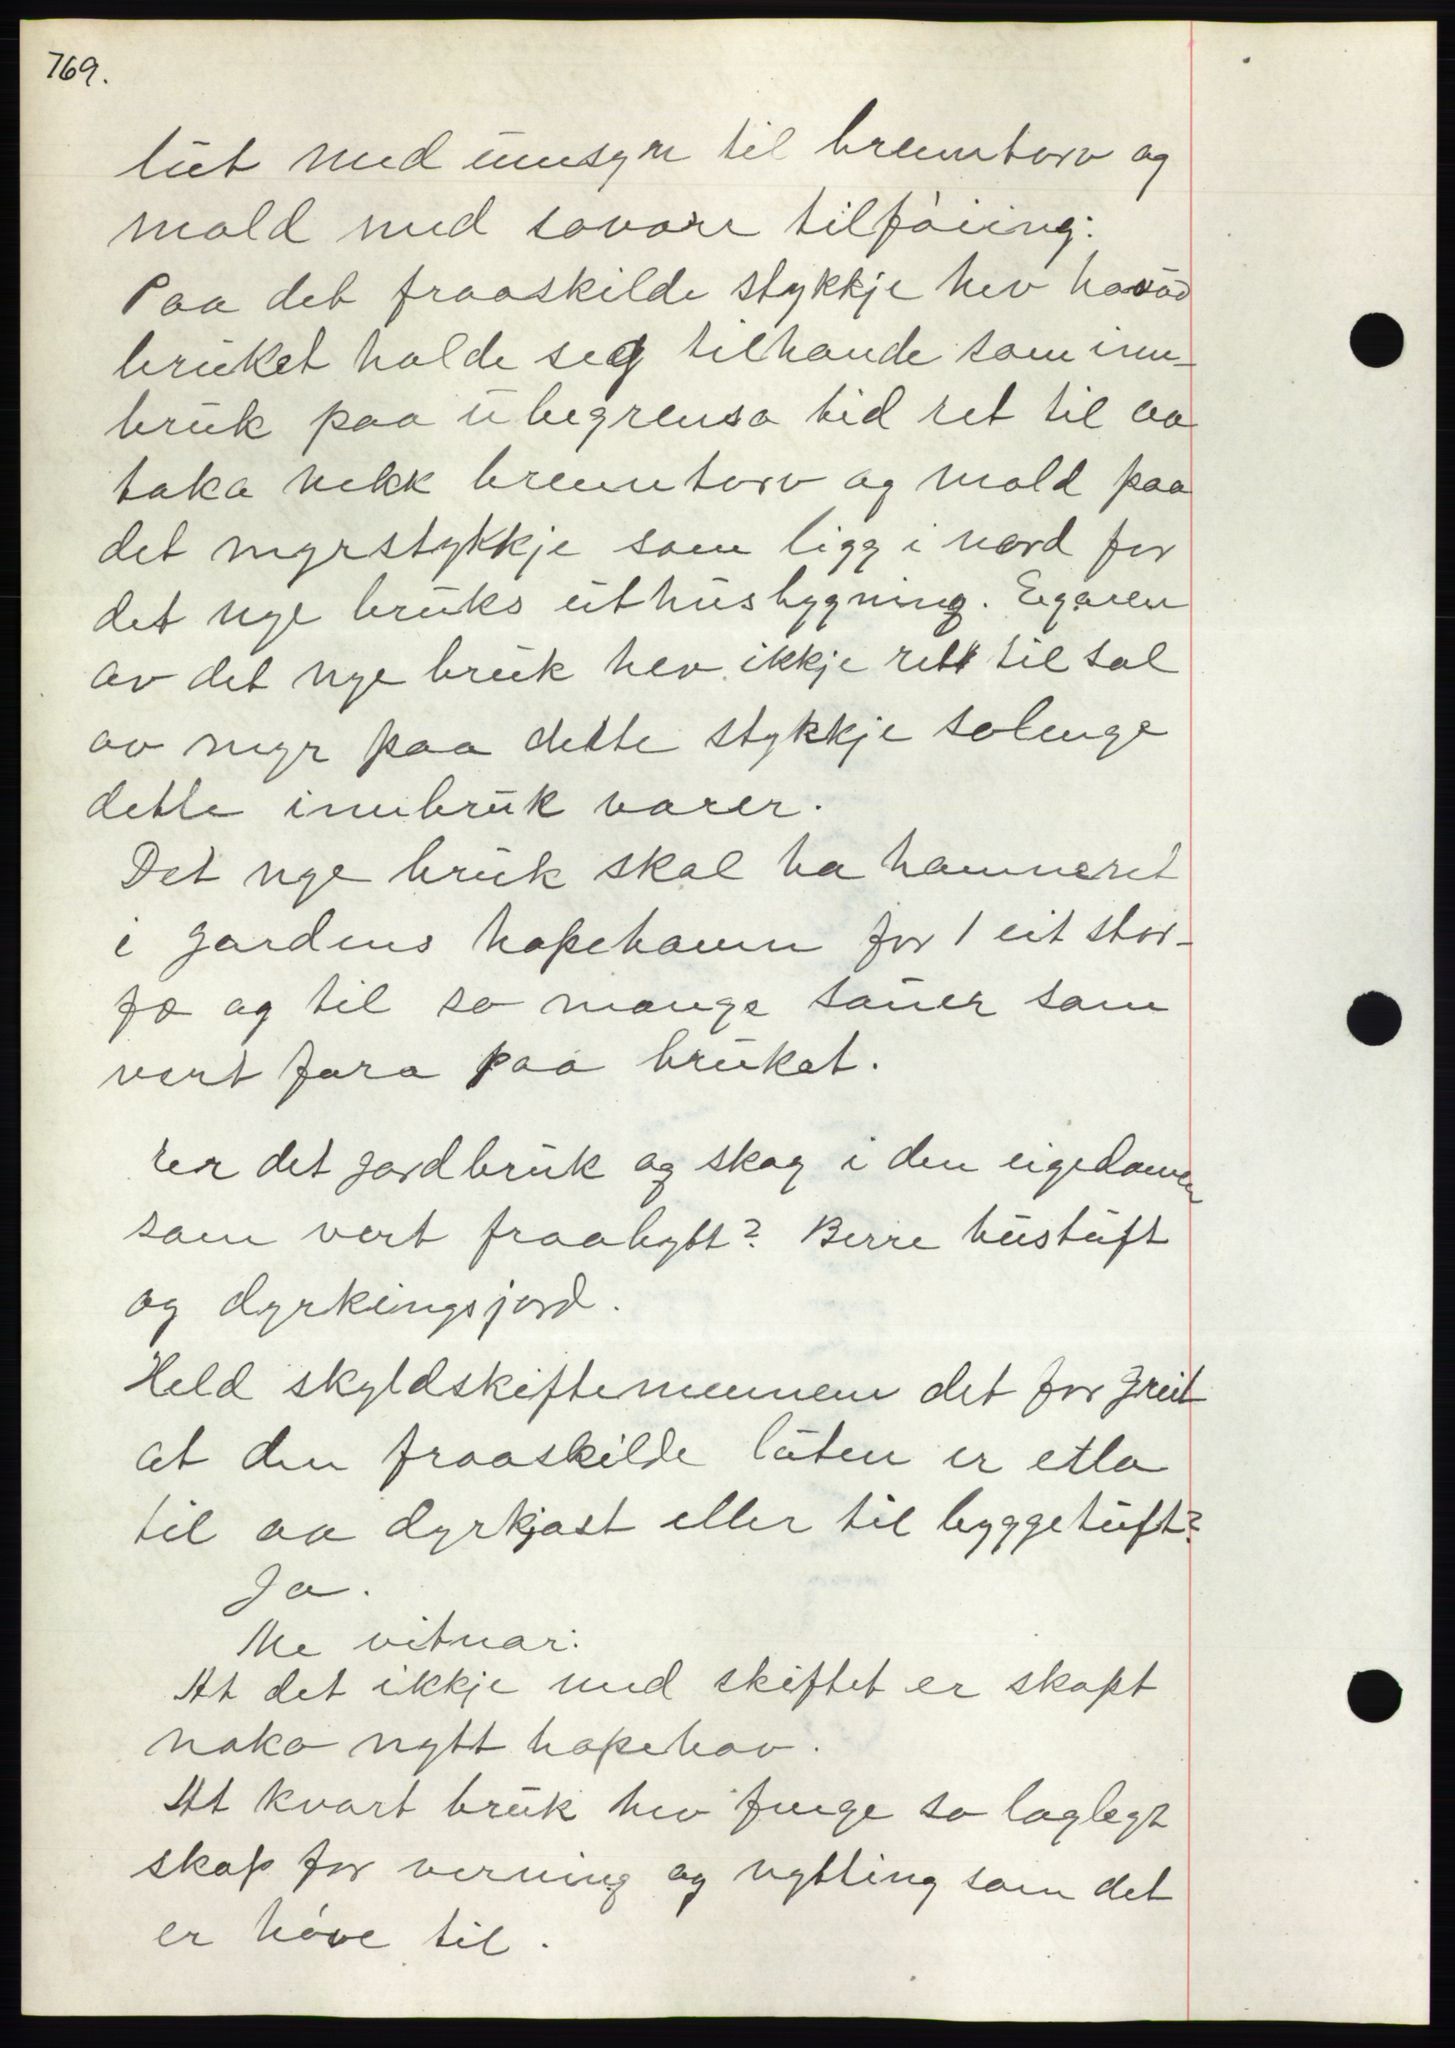 769.
lut med umsyn til brenntorv og
mold med sovore tilföiing:
Paa det fraaskilde stykkje hev hovöd
bruket halde seg tilhande som inn-
bruk paa ubegrensa tid ret til aa
taka nokk brenntorv og mold paa
det myrstykkje som ligg i nord for
det nye bruks uthusbygning. Egaren
av det nye bruk hev ikkje rett til sal
av myr paa dette stykkje solenge
dette innbruk varer.
Det nye bruk skal ha hamneret
i gardens hopehamn for 1 eit stor-
fæ og til so mange sauer som
vert fora paa bruket.
Er det jordbruk og skog i den eigedomen
som vert fraabytt? Berre hustuft
og dyrkingsjord.
Held skyldskiftemennene det for greit
at den fraaskilde luten er etla
til aa dyrkjast eller til byggetuft?
Ja.
Me vitnar:
At det ikkje med skiftet er skapt
noko nytt hopehav.
At kvart bruk hev fenge so laglegt
skap for verning og nytting som det
er høve til.